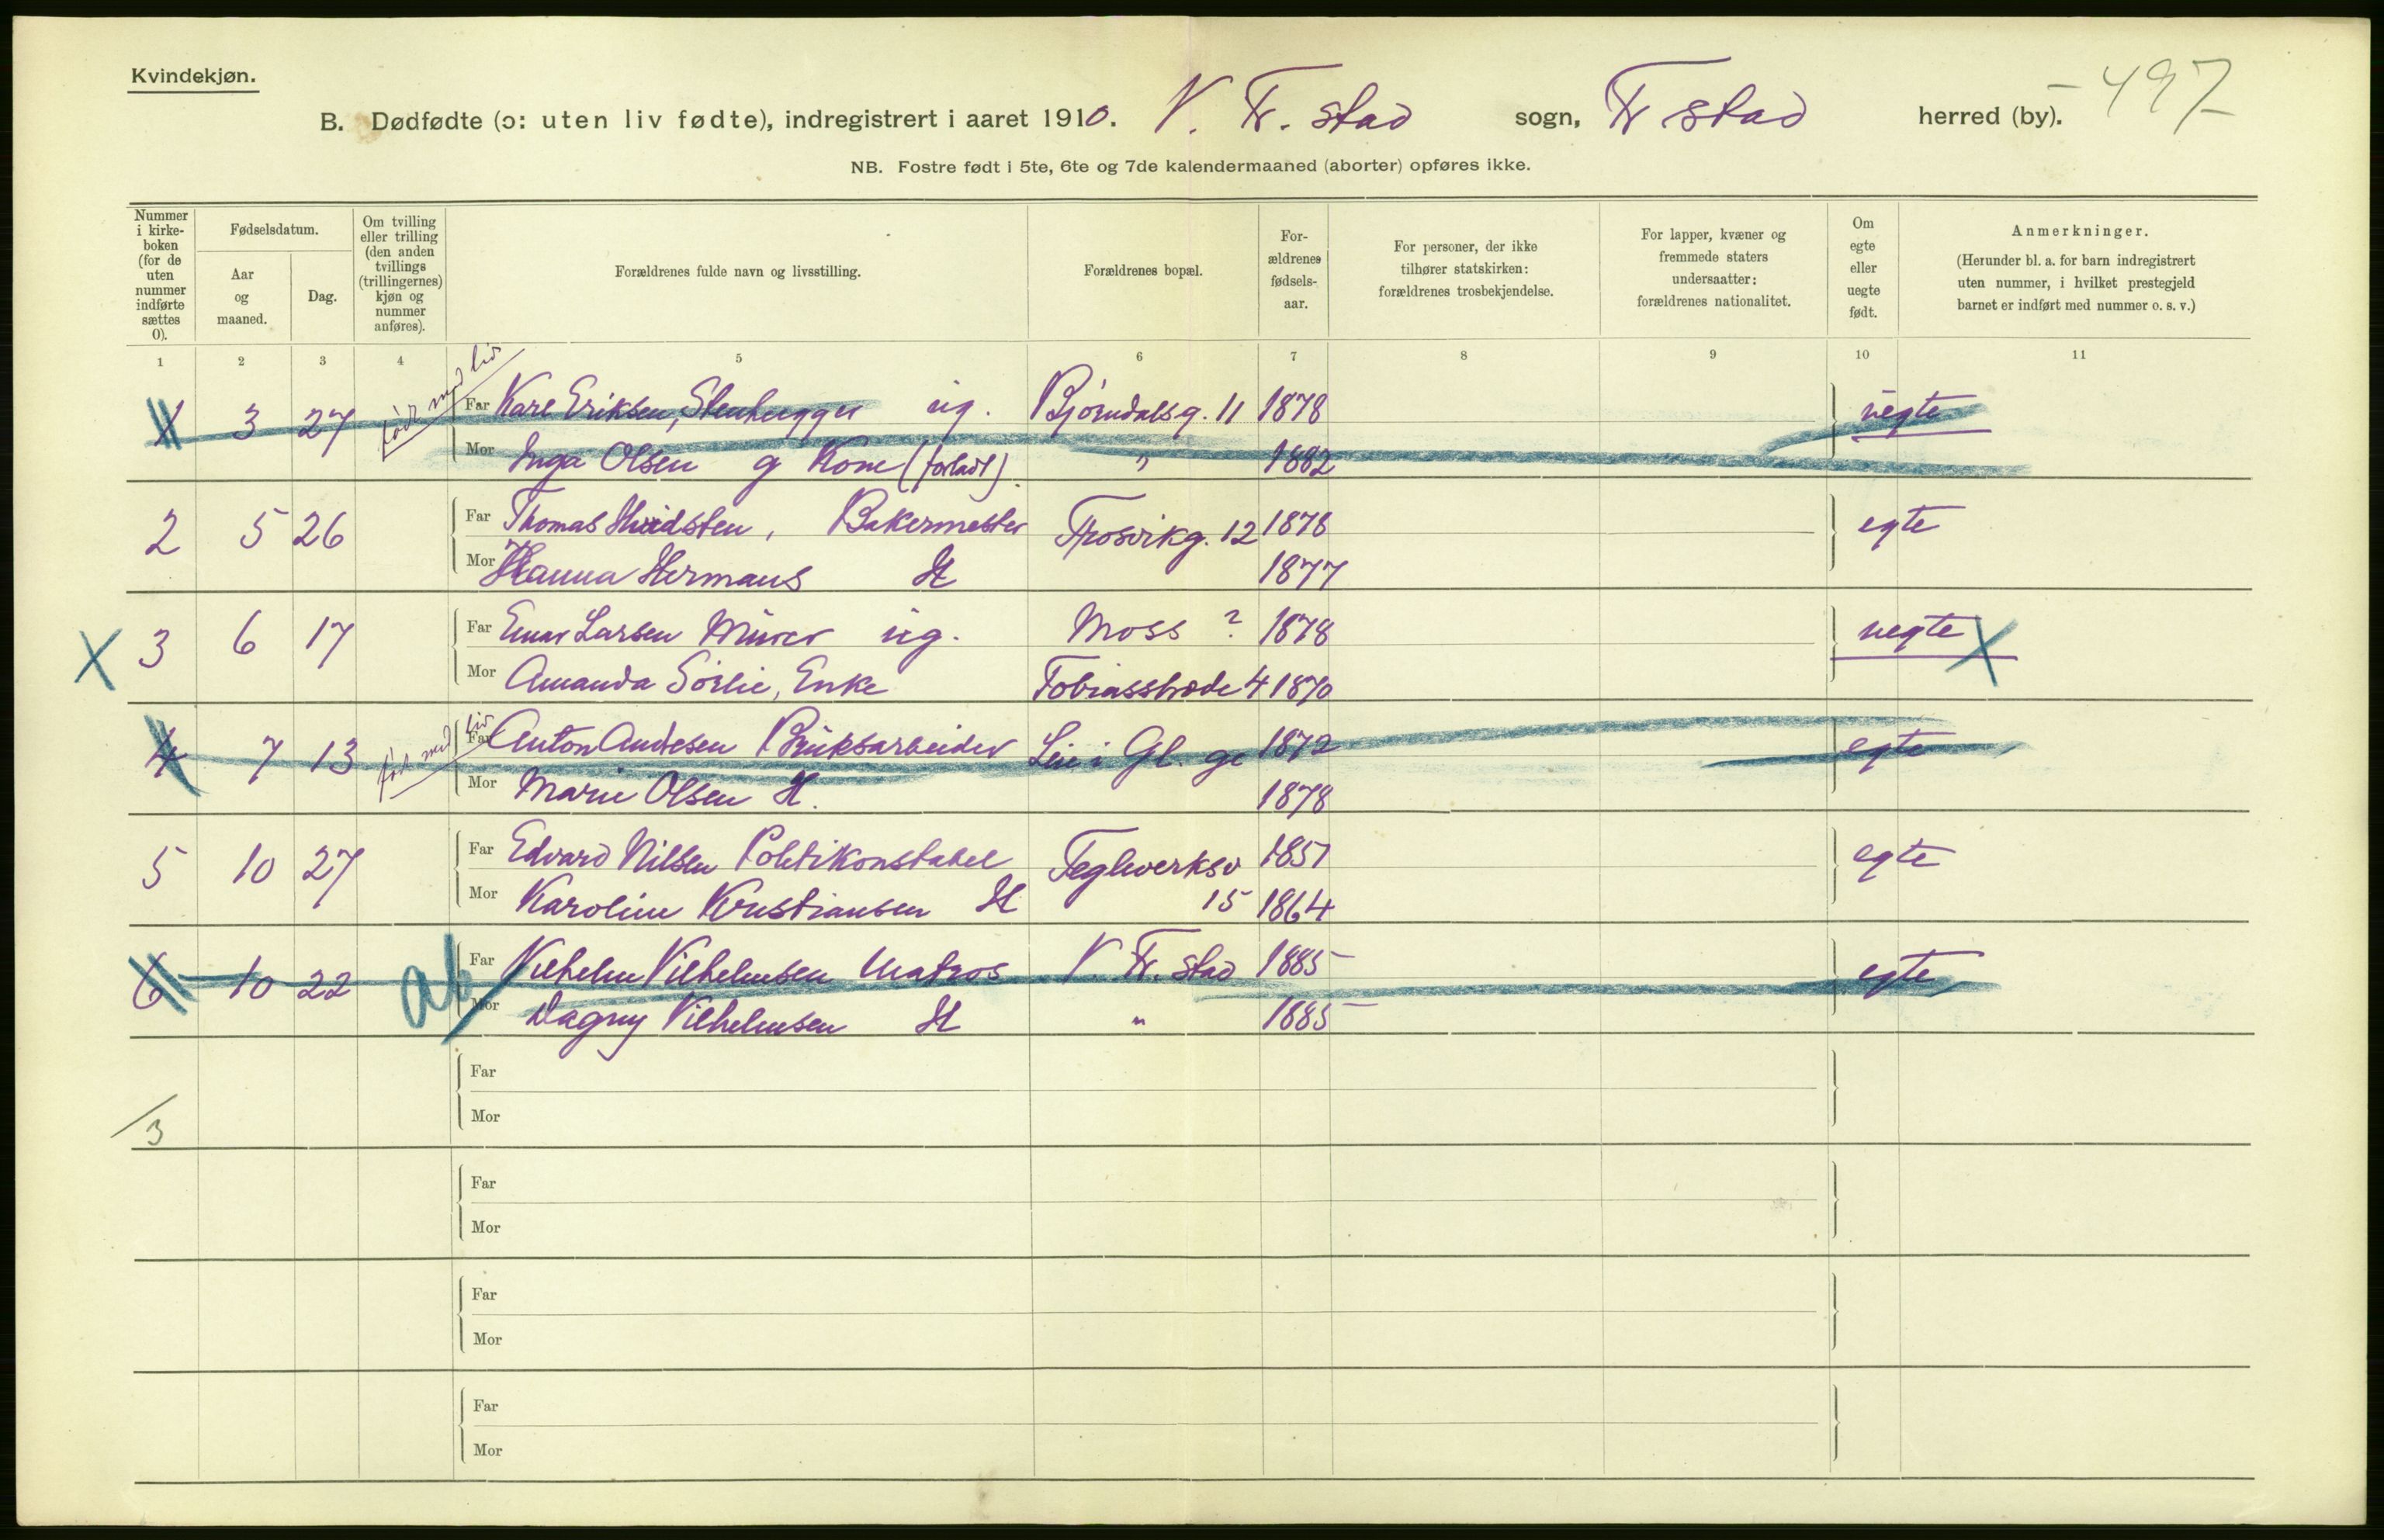 Kvindekjøn.
B. Dødfødte (ɔ: uten liv fødte), indregistrert i aaret 1910. V. Fr. stad sogn, Fr stad herred (by). 497
NB. Fostre født i 5te, 6te og 7de kalendermaaned (aborter) opføres ikke.
Nummer i kirke- boken (for de uten nummer indførte sættes 0).
Fødselsdatum.
Aar og maaned.
Dag.
Om tvilling eller trilling (den anden tvillings (trillingernes) kjøn og nummer anføres).
Forældrenes fulde navn og livsstilling.
Forældrenes bopæl.
For- ældrenes fødsels- aar.
For personer, der ikke tilhører statskirken: forældrenes trosbekjendelse.
For lapper, kvæner og fremmede staters undersaatter: forældrenes nationalitet.
Om egte eller uegte født.
Anmerkninger.
(Herunder bl. a. for barn indregistrert uten nummer, i hvilket prestegjeld barnet er indført med nummer o. s. v.)
1 2 3 4 5 6 7 8 9 10 11
1 3 27 født med liv Far Karl Eriksen, Stenhugger ug. Bjørndalsg. 11 1878 uegte
Mor Inga Olsen g Kone (forladt) " 1882
2 5 26 Far Thomas Hvidsten, Bakermester Trosvikg. 12 1878 egte
Mor Hanna Hermans H 1877
X 3 6 17 Far Einar Larsen Murer ug. Moss ? 1878 uegte X
Mor Amanda Sørlie, Enke Tobiasstræde 4 1870
4 7 13 født med liv Far Anton Andresen Bruksarbeider Leie i Gl. 1872 egte
Mor Marie Olsen H. 1878
5 10 27 Far Edvard Nilsen Politikonstabel Teglverksv 1857 egte
Mor Karoline Kristiansen H 15 1864
6 10 22 ab Far Vilhelm Vilhelmsen Matros V. Fr. stad 1885 egte
Mor Dagny Vilhelmsen H " 1885
Far
/3 Mor
Far
Mor
Far
Mor
Far
Mor